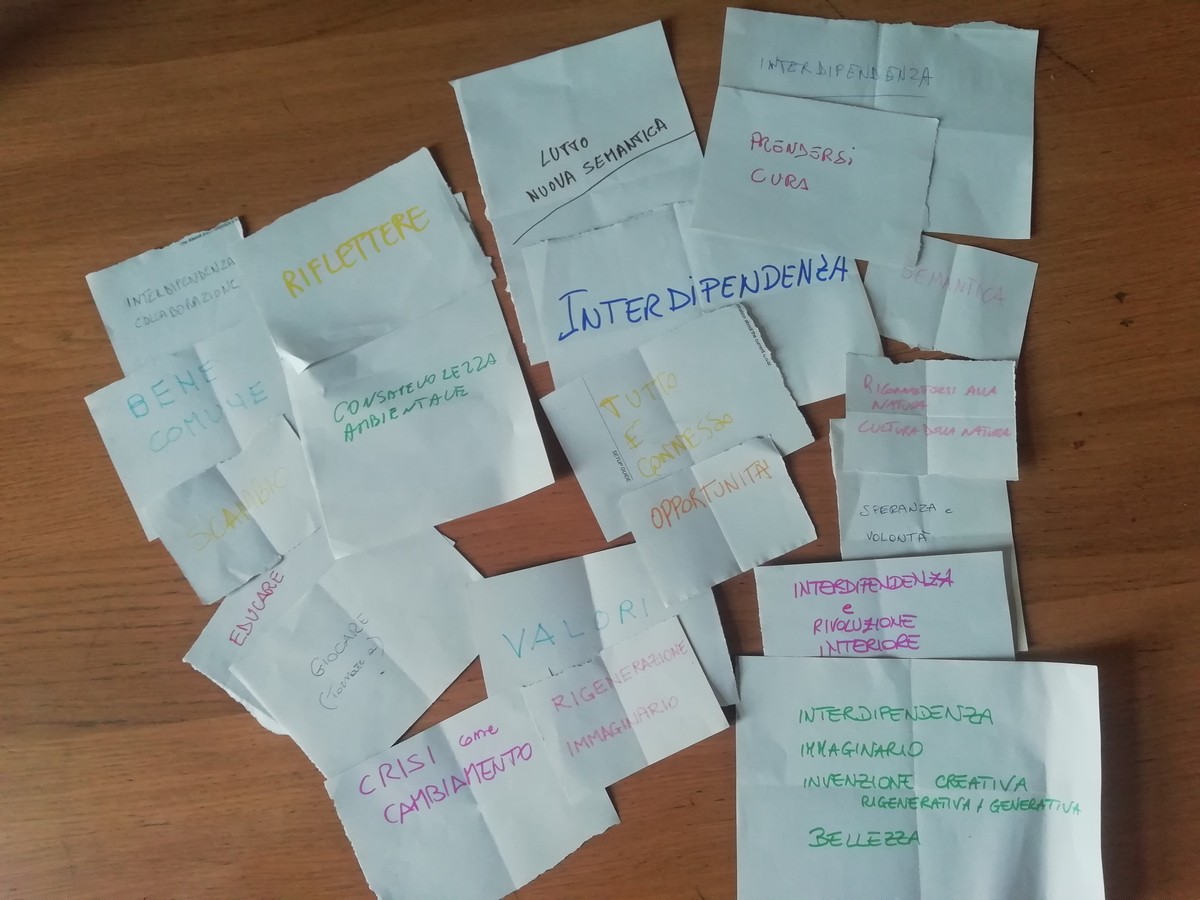 INTERDIPENDENZA
PRENDERSI
CURA
LUTTO
NUOVA SEMANTICA
RIFLETTERE
INTERDIPENDENZA
COLLABORAZIONE
INTERDIPENDENZA
SEMANTICA
BENE
COMUNE
CONSAPEVOLEZZA
AMBIENTALE
TUTTO
E
CONNESSO
SETUP GUIDE
RICONNETTERSI ALLA
NATURA
CULTURA DELLA NATURA
SCAMBIO
OPPORTUNITA'
SPERANZA e
VOLONTÀ
EDUCARE
GIOCARE
(Tornare a)
VALORI
INTERDIPENDENZA
e
RIVOLUZIONE
INTERIORE
RIGENERAZIONE
IMMAGINARIO
CRISI come
CAMBIAMENTO
INTERDIPENDENZA
IMMAGINARIO
INVENZIONE CREATIVA
RIGENERATIVA / GENERATIVA
BELLEZZA